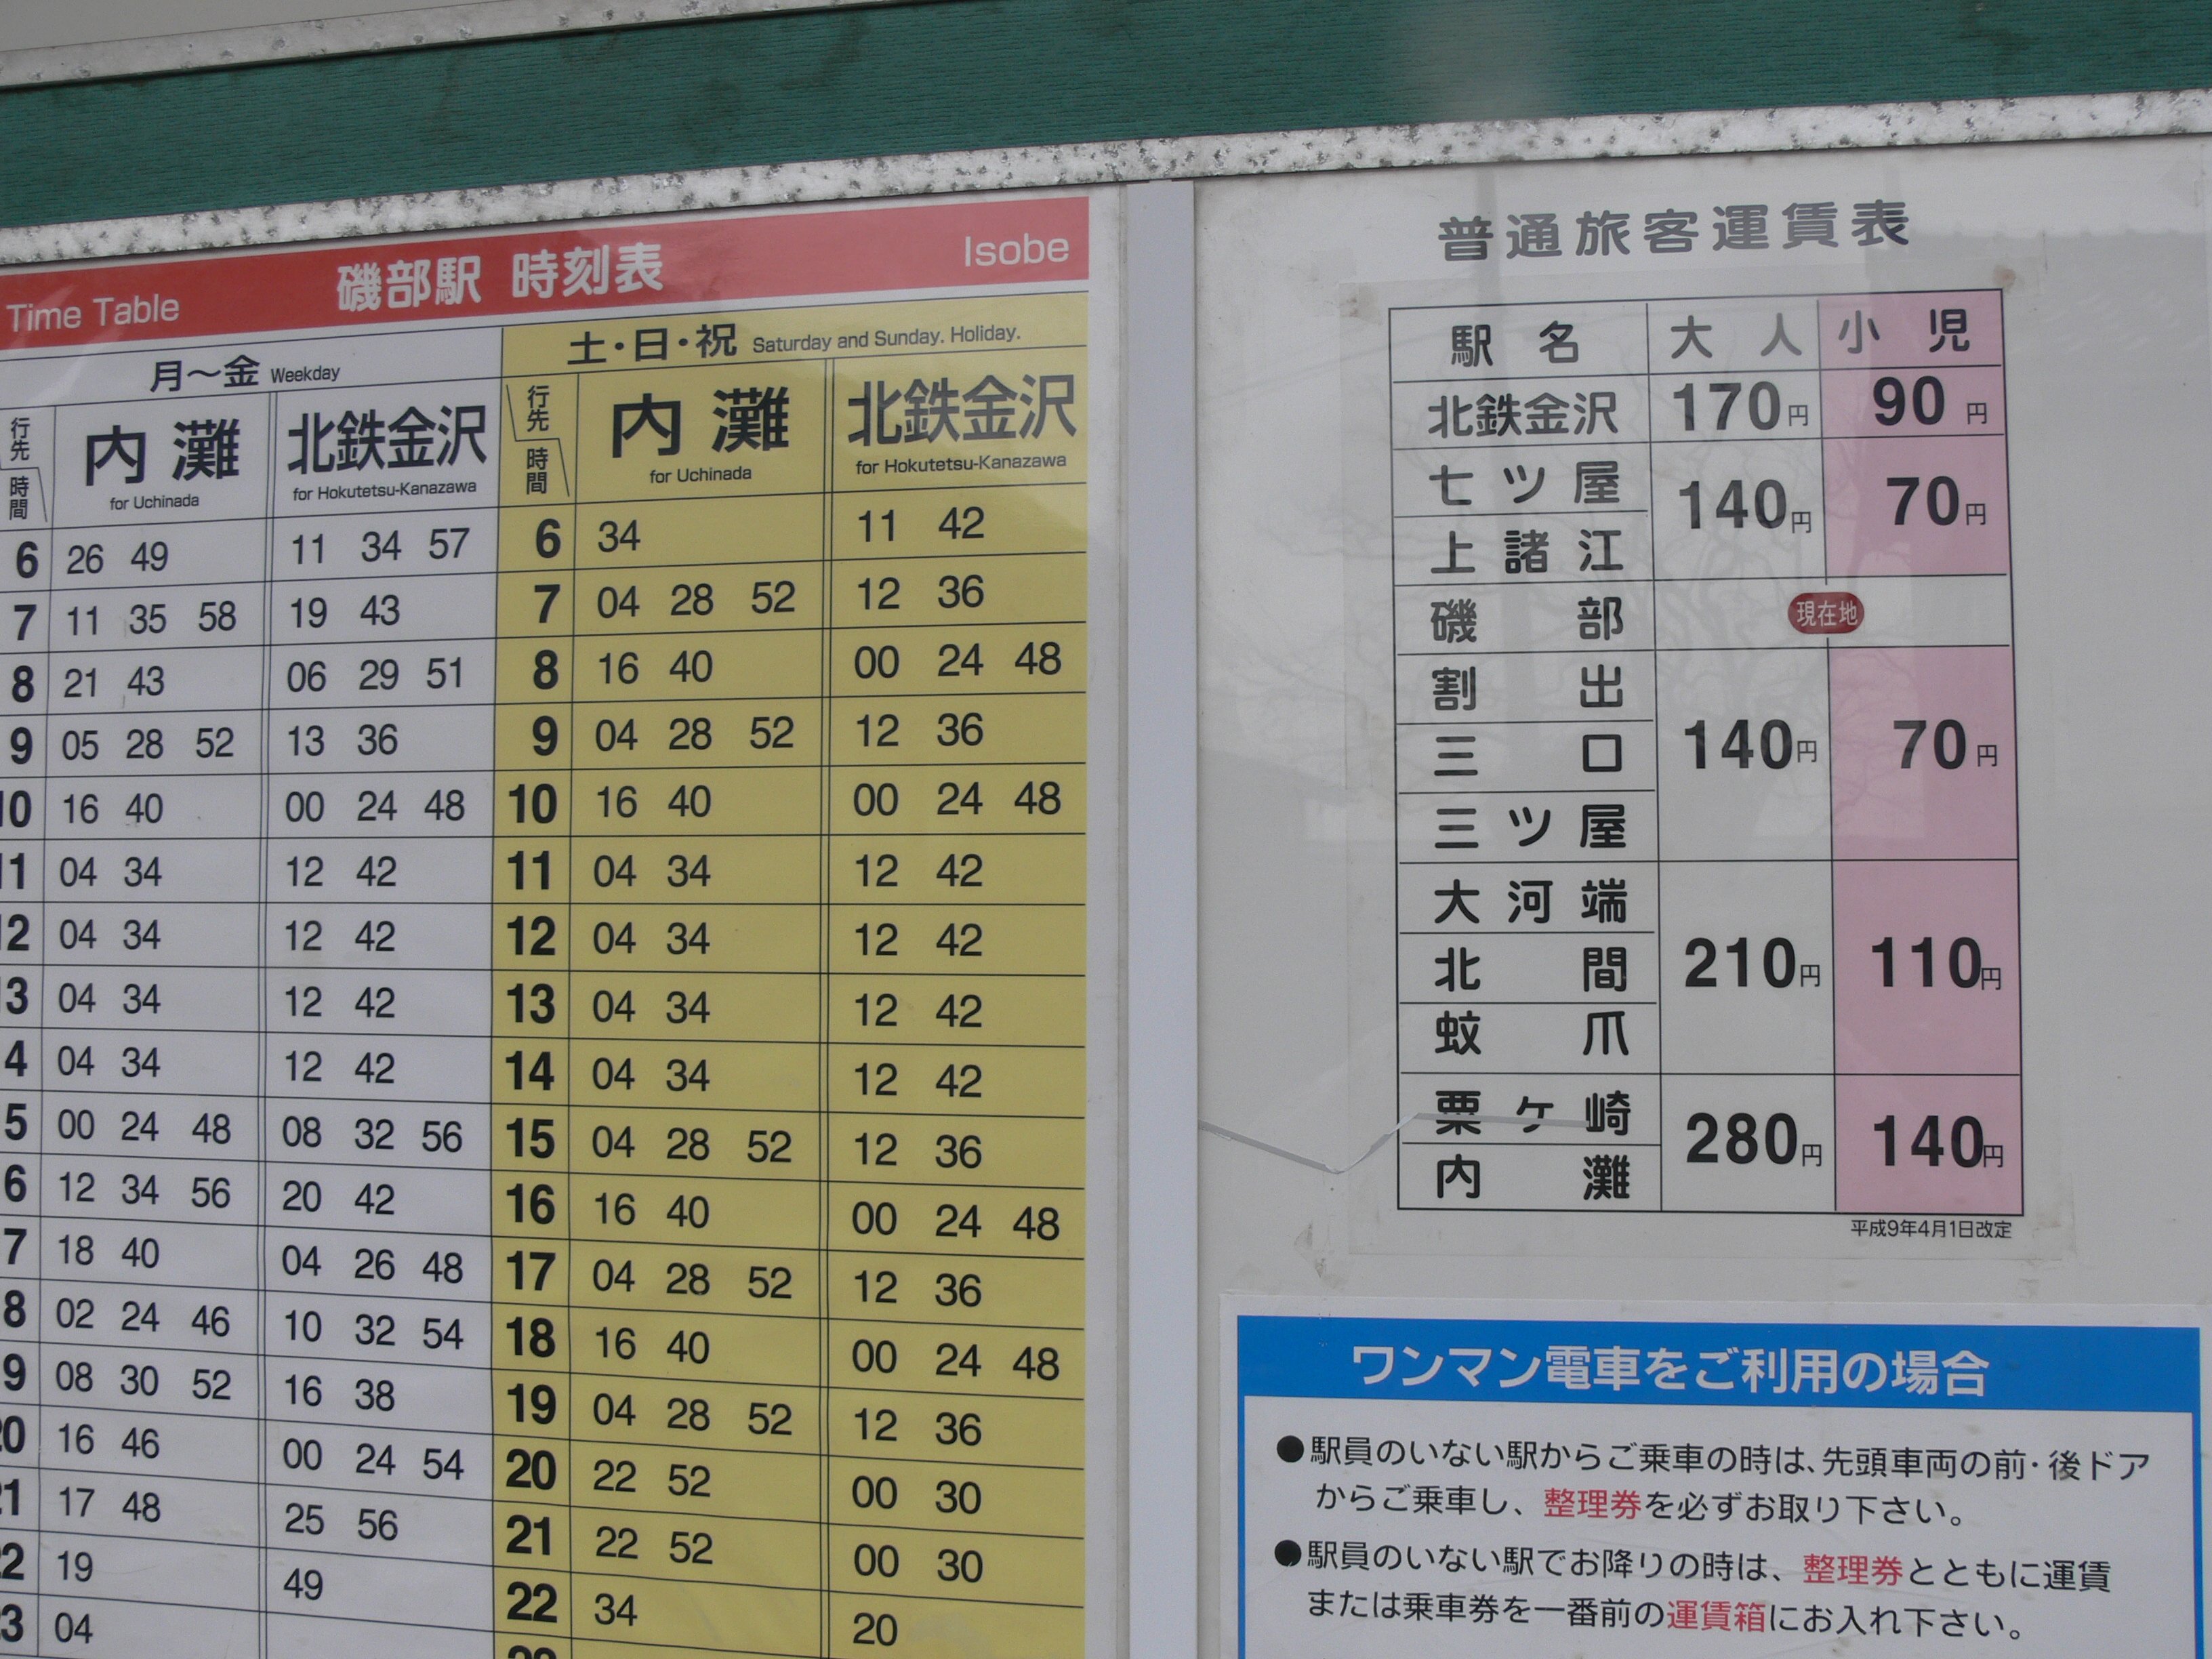 Time Table 磯部駅 時刻表 Isobe
月～金 Weekday
土・日・祝 Saturday and Sunday. Holiday.
行先 時間 内灘 for Uchinada 北鉄金沢 for Hokutetsu-Kanazawa 行先 時間 内灘 for Uchinada 北鉄金沢 for Hokutetsu-Kanazawa
6 26 49 11 34 57 6 34 11 42
7 11 35 58 19 43 7 04 28 52 12 36
8 21 43 06 29 51 8 16 40 00 24 48
9 05 28 52 13 36 9 04 28 52 12 36
10 16 40 00 24 48 10 16 40 00 24 48
11 04 34 12 42 11 04 34 12 42
12 04 34 12 42 12 04 34 12 42
13 04 34 12 42 13 04 34 12 42
4 04 34 12 42 14 04 34 12 42
5 00 24 48 08 32 56 15 04 28 52 12 36
6 12 34 56 20 42 16 16 40 00 24 48
7 18 40 04 26 48 17 04 28 52 12 36
8 02 24 46 10 32 54 18 16 40 00 24 48
9 08 30 52 16 38 19 04 28 52 12 36
20 16 46 00 24 54 20 22 52 00 30
21 17 48 25 56 21 22 52 00 30
22 19 49 22 34 20
3 04
普通旅客運賃表
駅名 大人 小児
北鉄金沢 170円 90円
七ツ屋 140円 70円
上諸江
磯部 現在地
割出
三口 140円 70円
三ツ屋
大河端
北間 210円 110円
蚊爪
粟ケ崎 280円 140円
内灘
平成9年4月1日改定
ワンマン電車をご利用の場合
●駅員のいない駅からご乗車の時は、先頭車両の前・後ドア
からご乗車し、整理券を必ずお取り下さい。
●駅員のいない駅でお降りの時は、整理券とともに運賃
または乗車券を一番前の運賃箱にお入れ下さい。